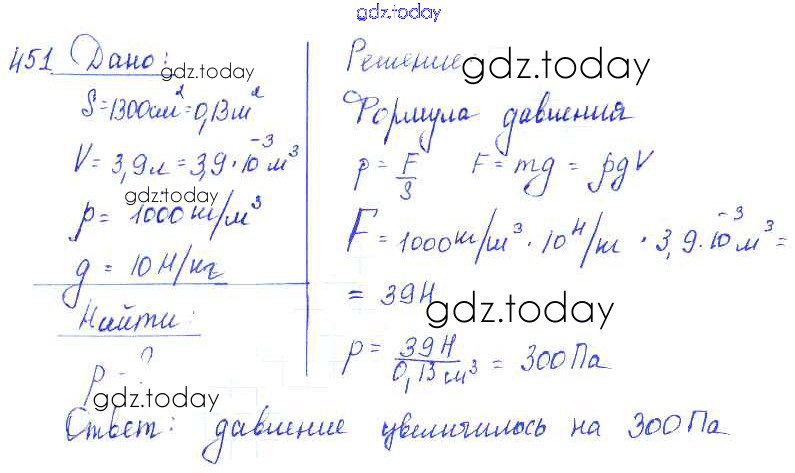 gdz.today
451 Дано:
gdz.today
S = 1300 см² = 0,13 м²
V = 3,9 л = 3,9 · 10⁻³ м³
gdz.today
ρ = 1000 кг/м³
g = 10 Н/кг
Найти:
p - ?
gdz.today
Решение:
gdz.today
Формула давления
p = F/S F = mg = ρgV
F = 1000 кг/м³ · 10 Н/кг · 3,9 · 10⁻³ м³ =
= 39 Н
gdz.today
p = 39 Н / 0,13 см³ = 300 Па
Ответ: давление увеличилось на 300 Па